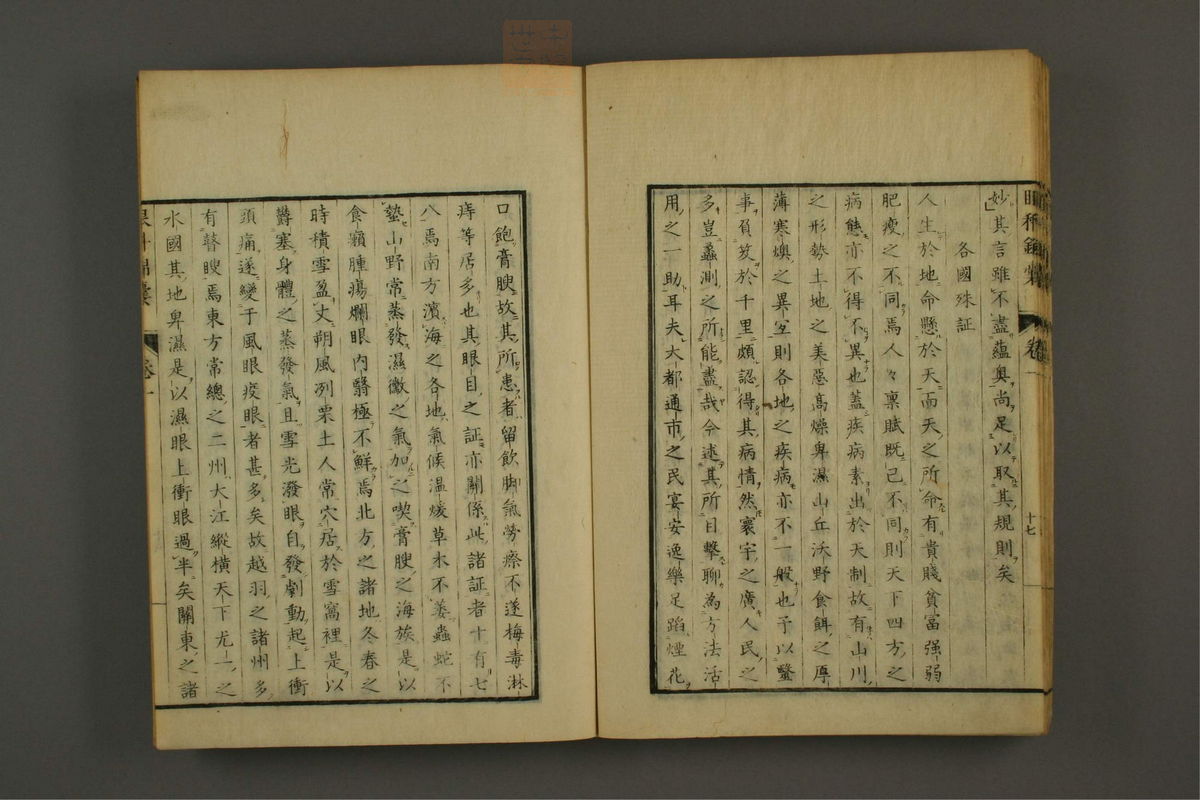 妙其言雖不盡蘊奧尚足以取其規則矣
各國殊証
人生於地命懸於天而天之所命有貴賤貧富强弱
肥瘦之不同焉人々禀賦既已不同則天下四方之
病態亦不得不異也蓋疾病素出於天制故有山川
之形勢土地之美惡高燥卑濕山丘沃野食餌之厚
薄寒燠之異宜則各地之疾病亦不一般也予以鑒
事負笈於千里頗認得其病情然寰宇之廣人民之
多豈蠡測之所能盡哉今述其所目擊聊為方法活
用之一助耳夫大都通市之民宴安逸樂足蹈煙花
十七
口飽膏腴故其所患者留飲脚氣勞瘵不遂梅毒淋
痔等居多也其眼目之証亦關係此諸証者十有七
八焉南方濱海之各地氣候温煖草木不萎蟲蛇不
蟄山野常蒸發濕黴之氣加之喫膏腴之海族是以
食癩腫瘍爛眼內翳極不鮮焉北方之諸地冬春之
時積雪盈丈朔風冽栗土人常穴居於雪窩裡是以
欝塞身體之蒸發氣且雪光潑眼自發劇動起上衝
頭痛遂變于風眼疫眼者甚多矣故越羽之諸州多
有瞽瞍焉東方常總之二州大江縱橫天下尤一之
水國其地卑濕是以濕眼上衝眼過半矣關東之諸